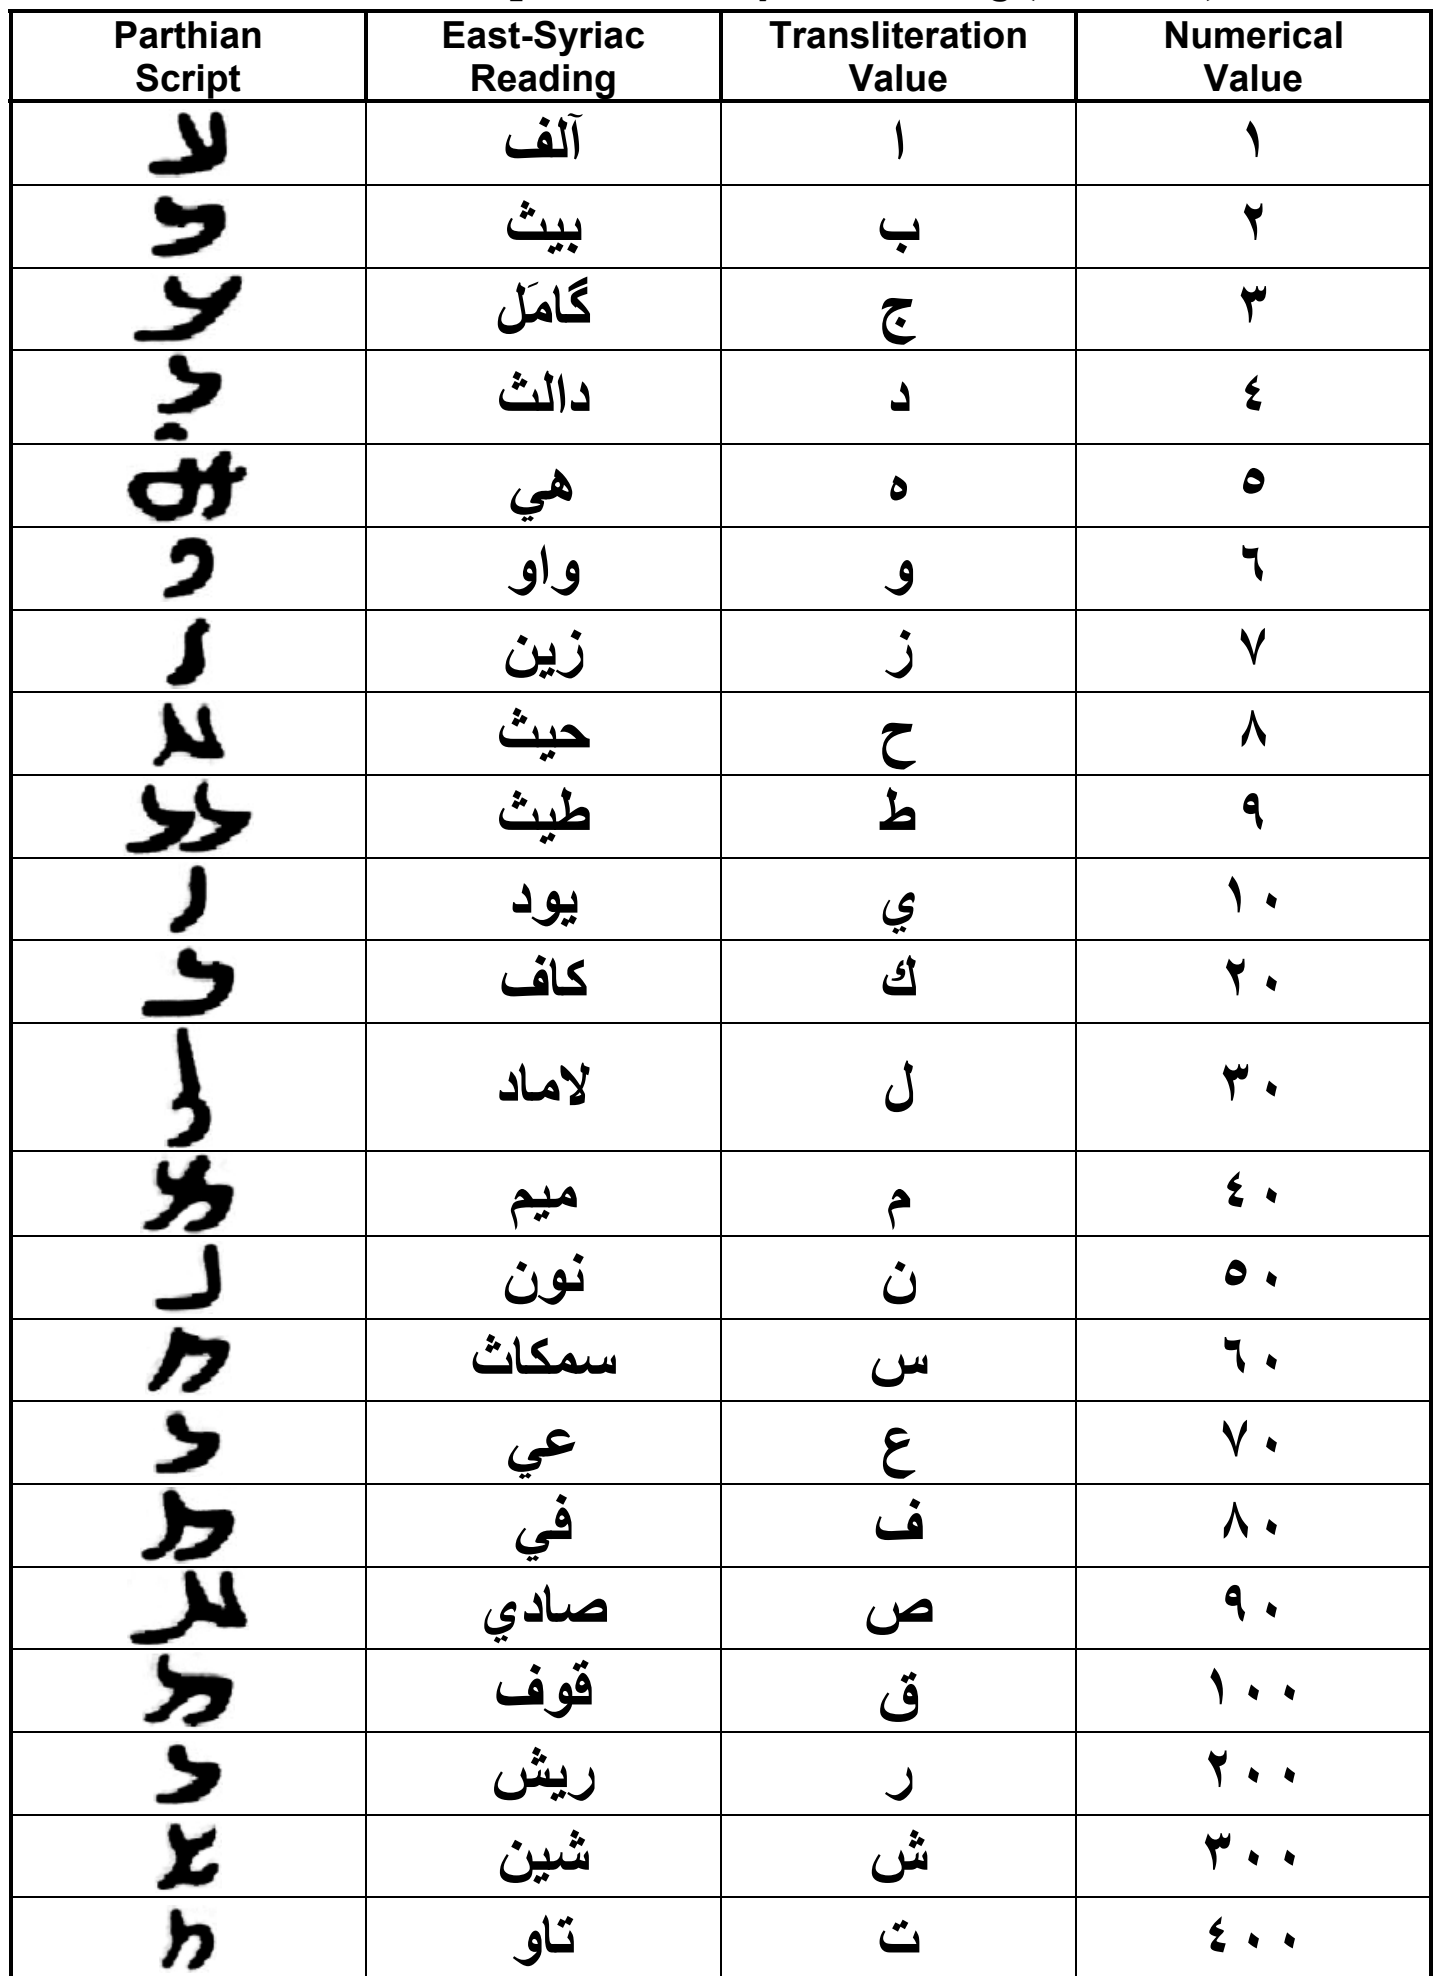 Parthian Script East-Syriac Reading Transliteration Value Numerical Value
آلف ا ١
بيث ب ٢
گامَل ج ٣
دالث د ٤
هي ه ٥
واو و ٦
زين ز ٧
حيث ح ٨
طيث ط ٩
يود ي ١٠
كاف ك ٢٠
لاماد ل ٣٠
ميم م ٤٠
نون ن ٥٠
سمكاث س ٦٠
عي ع ٧٠
في ف ٨٠
صادي ص ٩٠
قوف ق ١٠٠
ريش ر ٢٠٠
شين ش ٣٠٠
تاو ت ٤٠٠